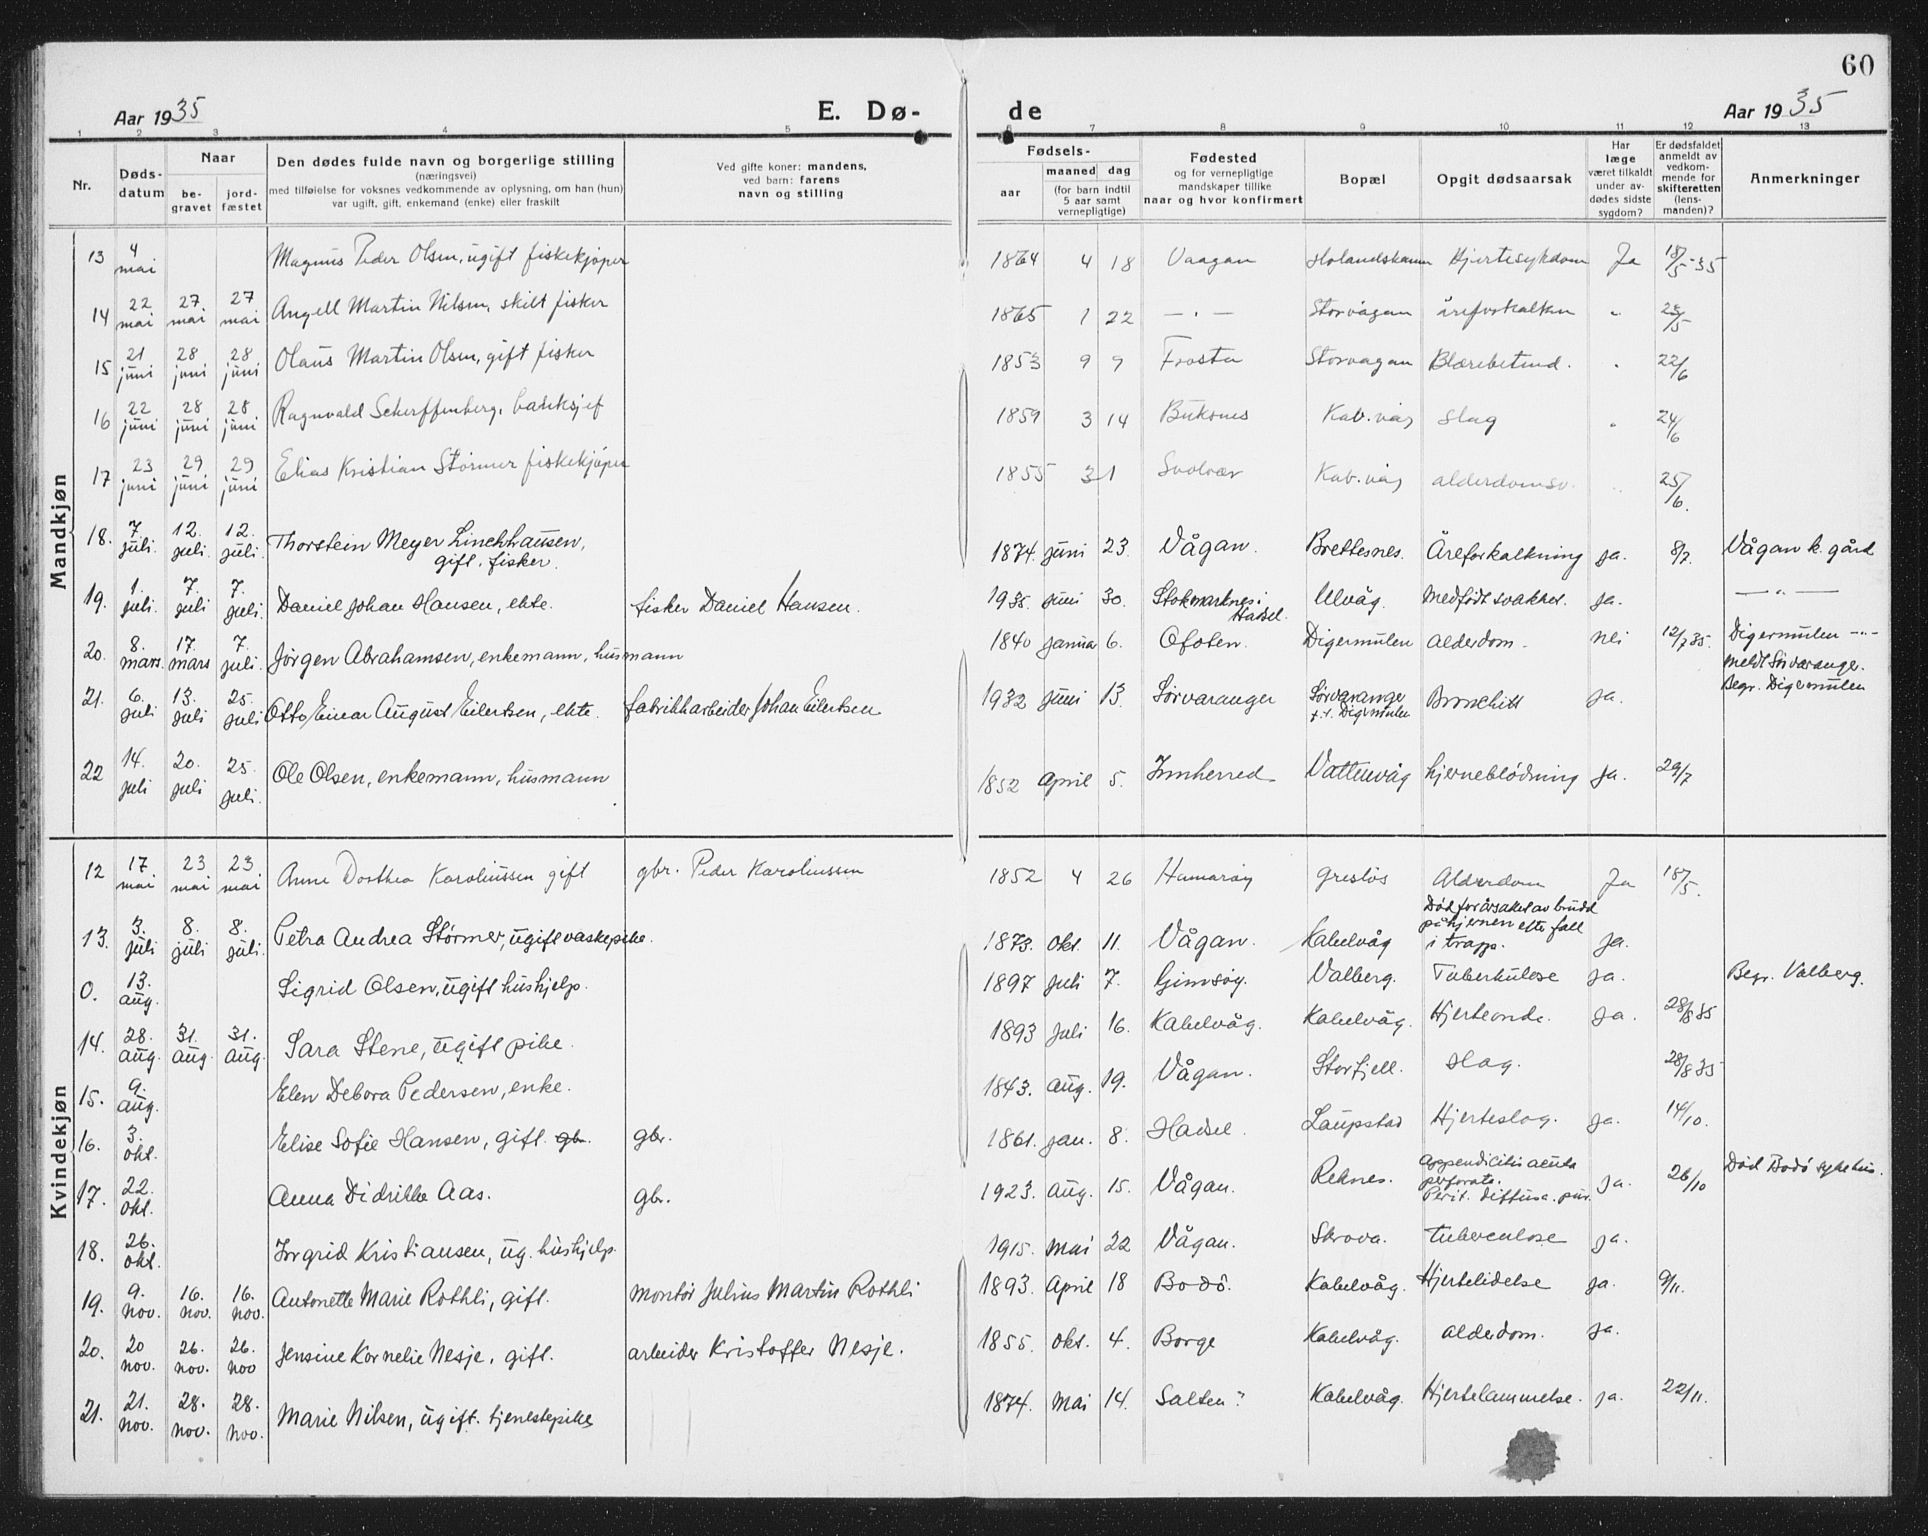 60
Aar 1935 E. Dø- de Aar 1935
1 2 3 4 5 6 7 8 9 10 11 12 13
Nr. Døds-datum Naar be-gravet jord-fæstet Den dødes fulde navn og borgerlige stilling (næringsvei) med tilføielse for voksnes vedkommende av oplysning, om han (hun) var ugift, gift, enkemand (enke) eller fraskilt Ved gifte koner: mandens, ved barn: farens navn og stilling Fødsels- aar maaned dag (for barn indtil 5 aar samt vernepligtige) Fødested og for vernepligtige mandskaper tillike naar og hvor konfirmert Bopæl Opgit dødsaarsak Har læge været tilkaldt under av-dødes sidste sygdom? Er dødsfaldet anmeldt av vedkom-mende for skifteretten (lens-manden)? Anmerkninger
Mandkjøn
13 4 mai Magnus Peder Olsen, ugift fiskekjøper 1864 4 18 Vaagan Hjertesykdom Ja 18/5-35
14 22 mai 27 mai 27 mai Angell Martin Nilsen, skilt fisker 1865 1 22 — " — Storvågan åreforkalken " 25/5
15 21 juni 28 juni 28 juni Olaus Martin Olsen, gift fisker 1853 9 9 Frosta Storvagan Blærebetend. " 22/6
16 22 juni 28 juni 28 juni Ragnvald Scherffenberg, banksjef 1859 3 14 Buksnes Kab.våg slag " 24/6
17 23 juni 29 juni 29 juni Elias Kristian Størmer fiskekjøper 1855 3 1 Svolvær Kab.våg alderdomsv. " 25/6.
18. 7. juli. 12. juli. 12. juli. Thorstein Meyer Linchhausen, gift. fisker. 1874. juni 23. Vågan. Brettesnes. Åreforkalkning ja. 8/7. Vågan k. gård
19. 1. juli. 7. juli 7. juli. Daniel Johan Hansen, ekte. fisker Daniel Hansen. 1935. juni 30. Stokmarknes i Hadsel. Ulvåg. Medfödt svakhet. ja. — " —
20. 8. mars. 17. mars 7. juli. Jörgen Abrahamsen, enkemann, husmann 1840 januar 6. Ofoten. Digermulen Alderdom. nei 12/7 35. Digermulen — " —
21. 6. juli 13. juli 25. juli Otto Einar August Eilertsen, ekte. fabrikkarbeider Johan Eilertsen 1932 juni 13. Sörvaranger Sörvaranger f.t. Digermulen Bronchitt ja. meldt Sörvaranger. Begr. Digermulen
22 14. juli 20. juli 25. juli. Ole Olsen, enkemann, husmann 1852 april 5. Innherred Vattervåg hjerneblödning ja. 29/7
Kvindekjøn
12 17 mai 23 mai 23 mai Anne Dorthea Karoliussen gift gbr. Peder Karoliussen 1852 4 26 Hamarøy Gresløs Alderdom Ja 18/5.
13. 3. juli 8. juli 8. juli. Petra Andrea Størmer, ugift vaskepike. 1873. okt. 11. Vågan. Kabelvåg Död forårsaket av brudd på hjernen efter fall i trapp. ja.
0. 13. aug. Sigrid Olsen, ugift hushjelp. 1897 juli 7. Gimsöy. Valberg. Tuberkulose ja. Begr. Valberg.
14. 28. aug. 31. aug. 31. aug. Sara Stene, ugift pike. 1893 juli 16. Kabelvåg. Kabelvåg. Hjerteonde. ja. 28/8 35
15. 9. aug. Elen Debora Pedersen, enke. 1843. aug. 19. Vågan. Storfjell. Slag. 28/8 35
16. 3. okt. Elise Sofie Hansen, gift. gbr. gbr. 1861. jan. 8. Hadsel. Laupstad Hjerteslag. ja. 14/10.
17. 22. okt. Anna Didrikke Aas. gbr. 1923. aug. 15. Vågan. Reknes. Appendicitis acuta perforata. Perit. diffusa. pur. ja. 26/10 Död Bodö sykehus.
18. 26. okt. Ingrid Kristiansen, ug. hushjelp. 1915. mai 22 Vågan. Skrova. tuberculose ja.
19. 9. nov. 16. nov. 16. nov. Antonette Marie Rothli, gift. montör Julius Martin Rothli 1893 April 18 Bodö. Kabelvåg. Hjertelidelse ja. 9/11.
20. 20 nov. 26. nov. 26. nov Jensine Kornelie Nesje, gift. arbeider Kristoffer Nesje. 1855. okt. 4. Borge Kabelvåg. alderdom. ja.
21. 21. nov. 28. nov. 28. nov. Marie Nilsen, ugift. tjenestepike 1874. Mai 14. Salten? Kabelvåg. Hjertelammelse. ja. 22/11.